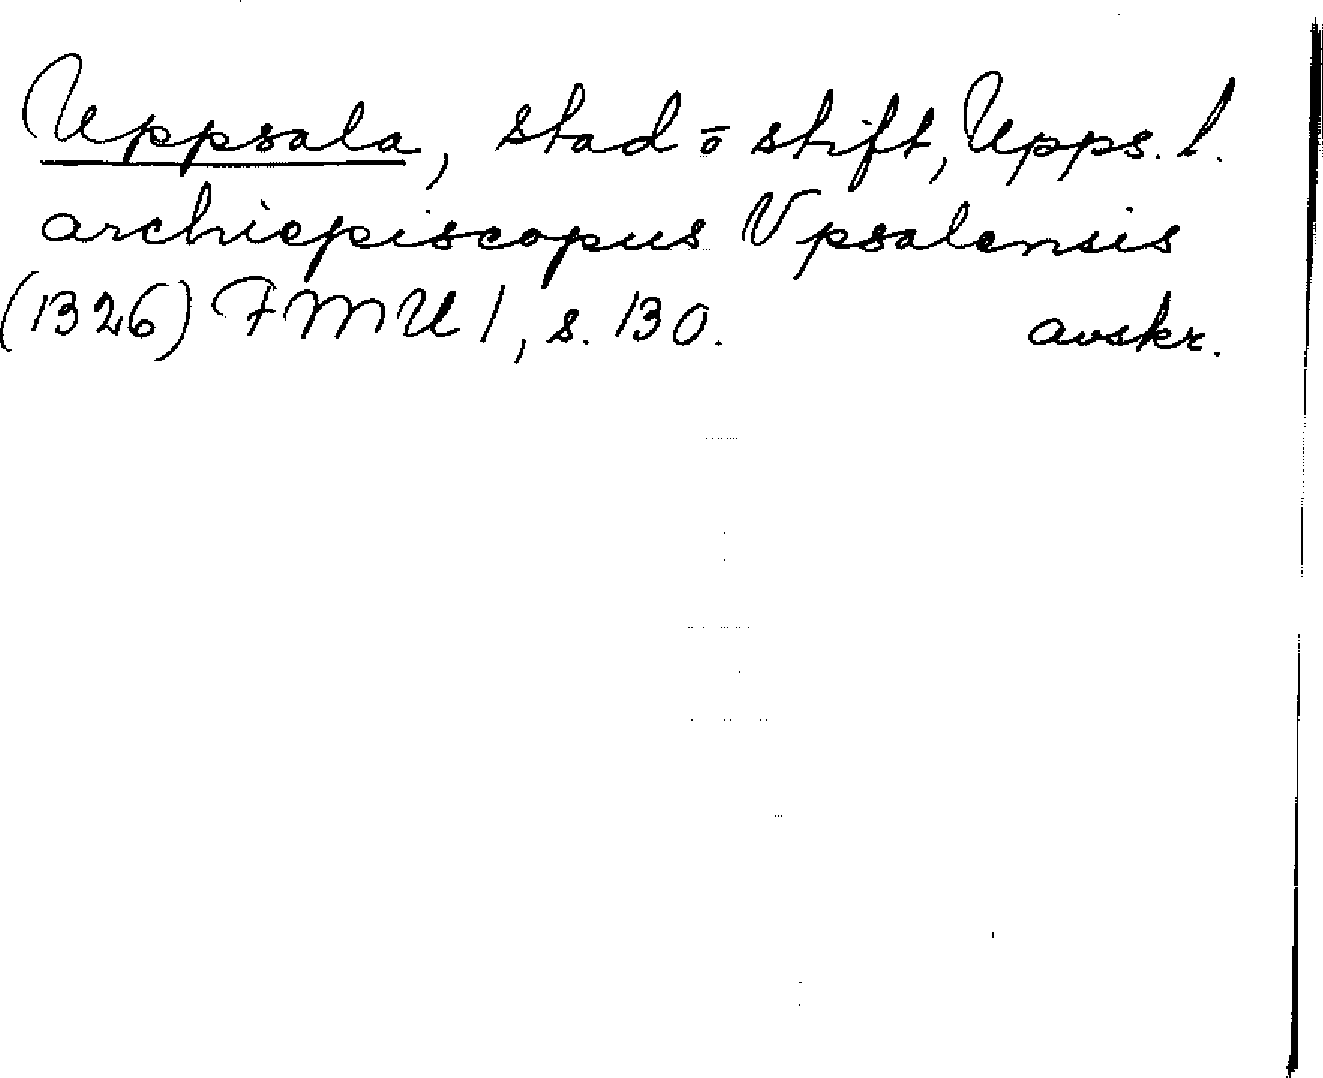 Uppsala, stad o stift, Upps. l.
archiepiscopus Vpsalensis
(1326) FMU 1, s. 130. avskr.